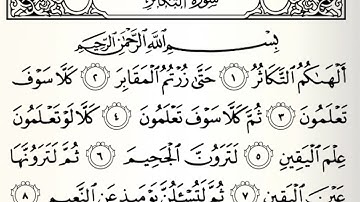 سورة التكاثر
بِسْمِ ٱللَّهِ ٱلرَّحْمَٰنِ ٱلرَّحِيمِ
أَلْهَىٰكُمُ ٱلتَّكَاثُرُ ١ حَتَّىٰ زُرْتُمُ ٱلْمَقَابِرَ ٢ كَلَّا سَوْفَ
تَعْلَمُونَ ٣ ثُمَّ كَلَّا سَوْفَ تَعْلَمُونَ ٤ كَلَّا لَوْ تَعْلَمُونَ
عِلْمَ ٱلْيَقِينِ ٥ لَتَرَوُنَّ ٱلْجَحِيمَ ٦ ثُمَّ لَتَرَوُنَّهَا
عَيْنَ ٱلْيَقِينِ ٧ ثُمَّ لَتُسْـَٔلُنَّ يَوْمَئِذٍ عَنِ ٱلنَّعِيمِ ٨